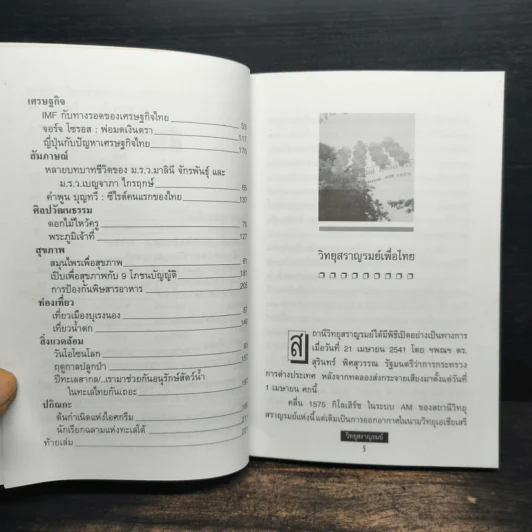 เศรษฐกิจ
IMF กับทางรอดของเศรษฐกิจไทย 53
จอร์จ โซรอส : พ่อมดเงินตรา 117
ญี่ปุ่นกับปัญหาเศรษฐกิจไทย 170
สัมภาษณ์
หลายบทบาทชีวิตของ ม.ร.ว.มาลินี จักรพันธุ์ และ
ม.ร.ว.เบญจาภา ไกรฤกษ์ 65
คำพูน บุญทวี : ซีไรต์คนแรกของไทย 137
ศิลปวัฒนธรรม
ดอกไม้ไหว้ครู
พระภูมิเจ้าที่ 127
สุขภาพ
สมุนไพรเพื่อสุขภาพ 81
เป็บเพื่อสุขภาพกับ 9 โภชนบัญญัติ 181
การป้องกันพิษสารอาหาร 205
ท่องเที่ยว
เที่ยวเมืองบุเรงนอง
เที่ยวน้ำตก
สิ่งแวดล้อม
วันโอโซนโลก
ฤดูกาลปลูกป่า
ปีทะเลสากล/..เรามาช่วยกันอนุรักษ์สัตว์น้ำ
ในทะเลไทยกันเถอะ
ปกิณกะ
ต้นกำเนิดแห่งไอศกรีม
นักเรียกฉลามแห่งทะเลใต้
ท้ายเล่ม
วิทยุสราญรมย์เพื่อไทย
สถานีวิทยุสราญรมย์ได้มีพิธีเปิดอย่างเป็นทางการ
เมื่อวันที่ 21 เมษายน 2541 โดย ฯพณฯ ดร.
สุรินทร์ พิศสุวรรณ รัฐมนตรีว่าการกระทรวง
การต่างประเทศ หลังจากทดลองส่งกระจายเสียงมาตั้งแต่วันที่
1 เมษายน ศกนี้
คลื่น 1575 กิโลเฮิร์ซ ในระบบ AM ของสถานีวิทยุ
สราญรมย์แห่งนี้ แต่เดิมเป็นการออกอากาศในนามวิทยุเอเชียเสรี
วิทยุสราญรมย์
5